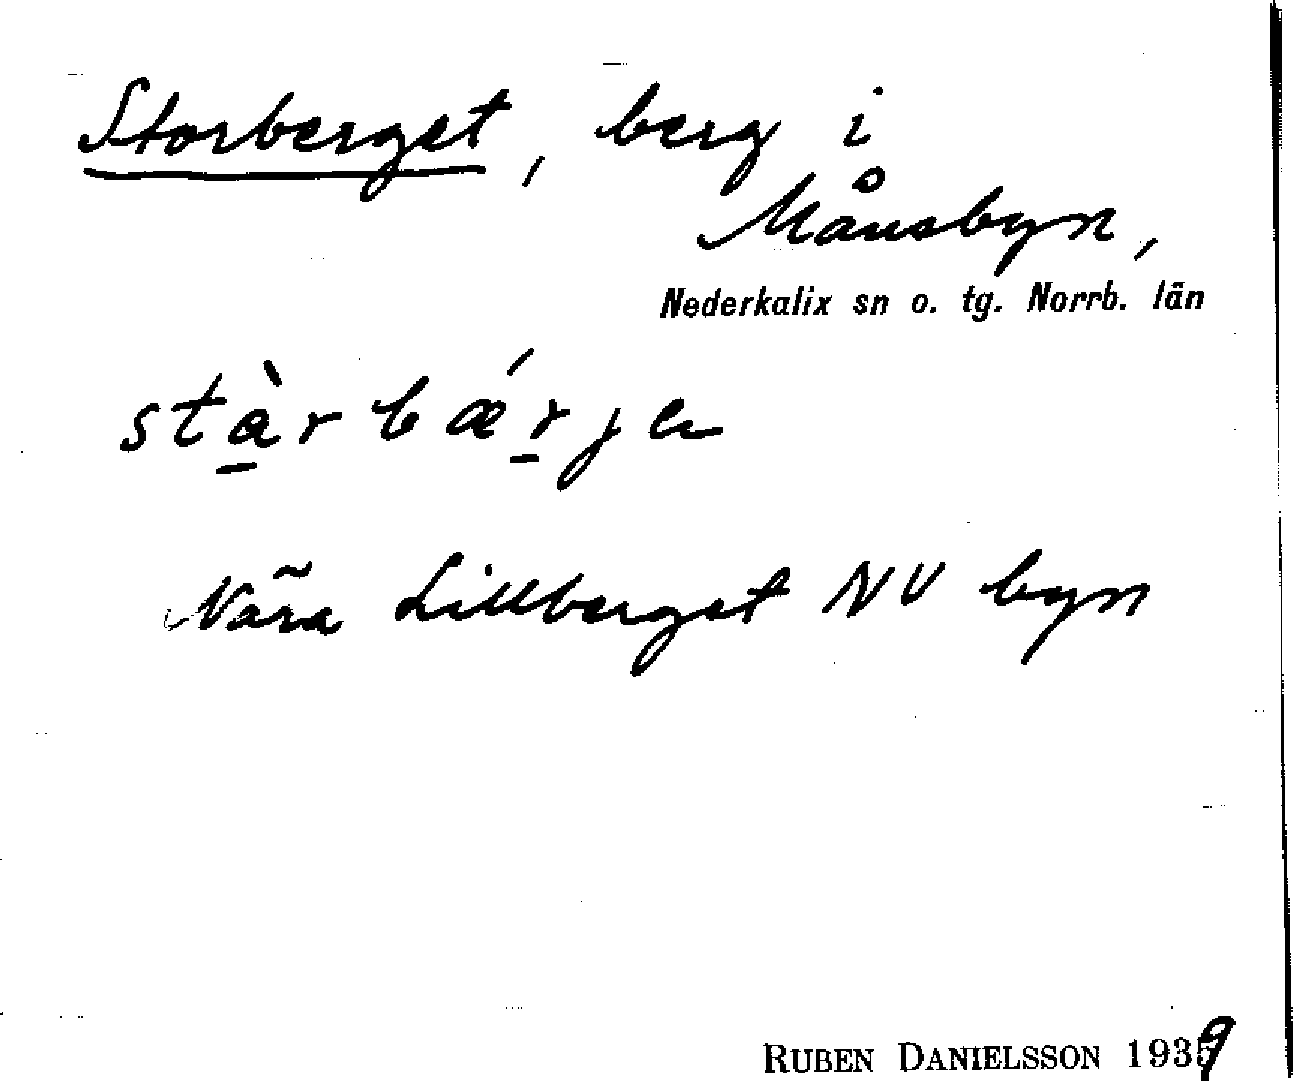 Storberget, berg i
Månsbyn,
Nederkalix sn o. tg. Norrb. län
stà̱rbǽṟje
Nära Lillberget NV byn
RUBEN DANIELSSON 1939